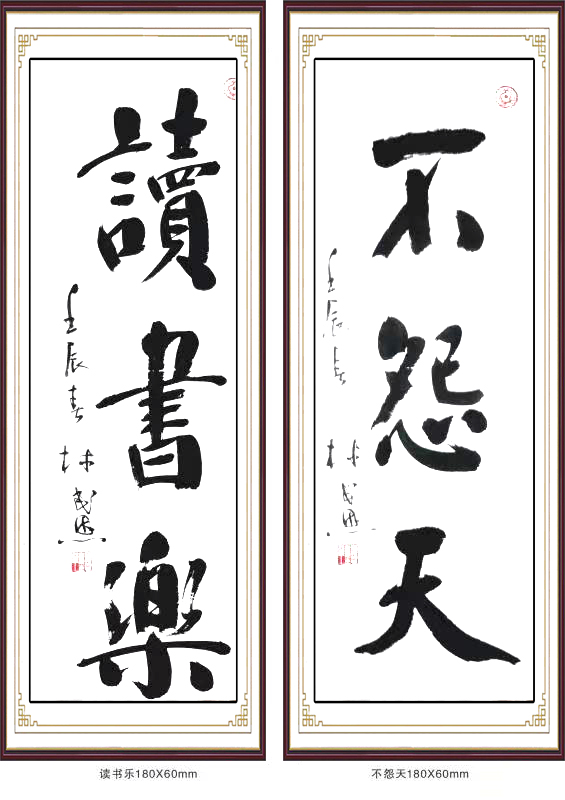 讀書樂
壬辰春
林
读书乐180X60mm
不怨天
壬辰春
林
不怨天180X60mm